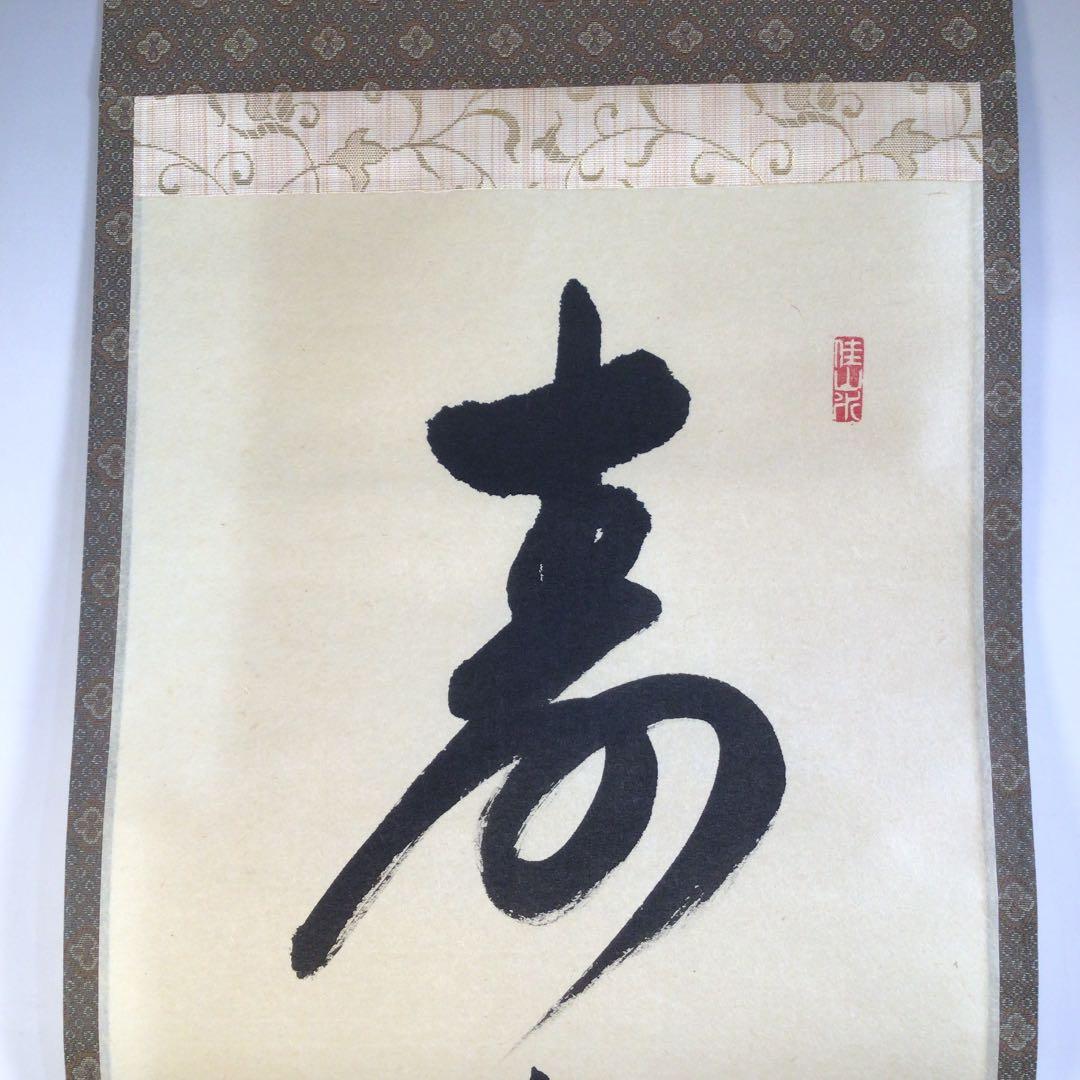 寿
佳山水